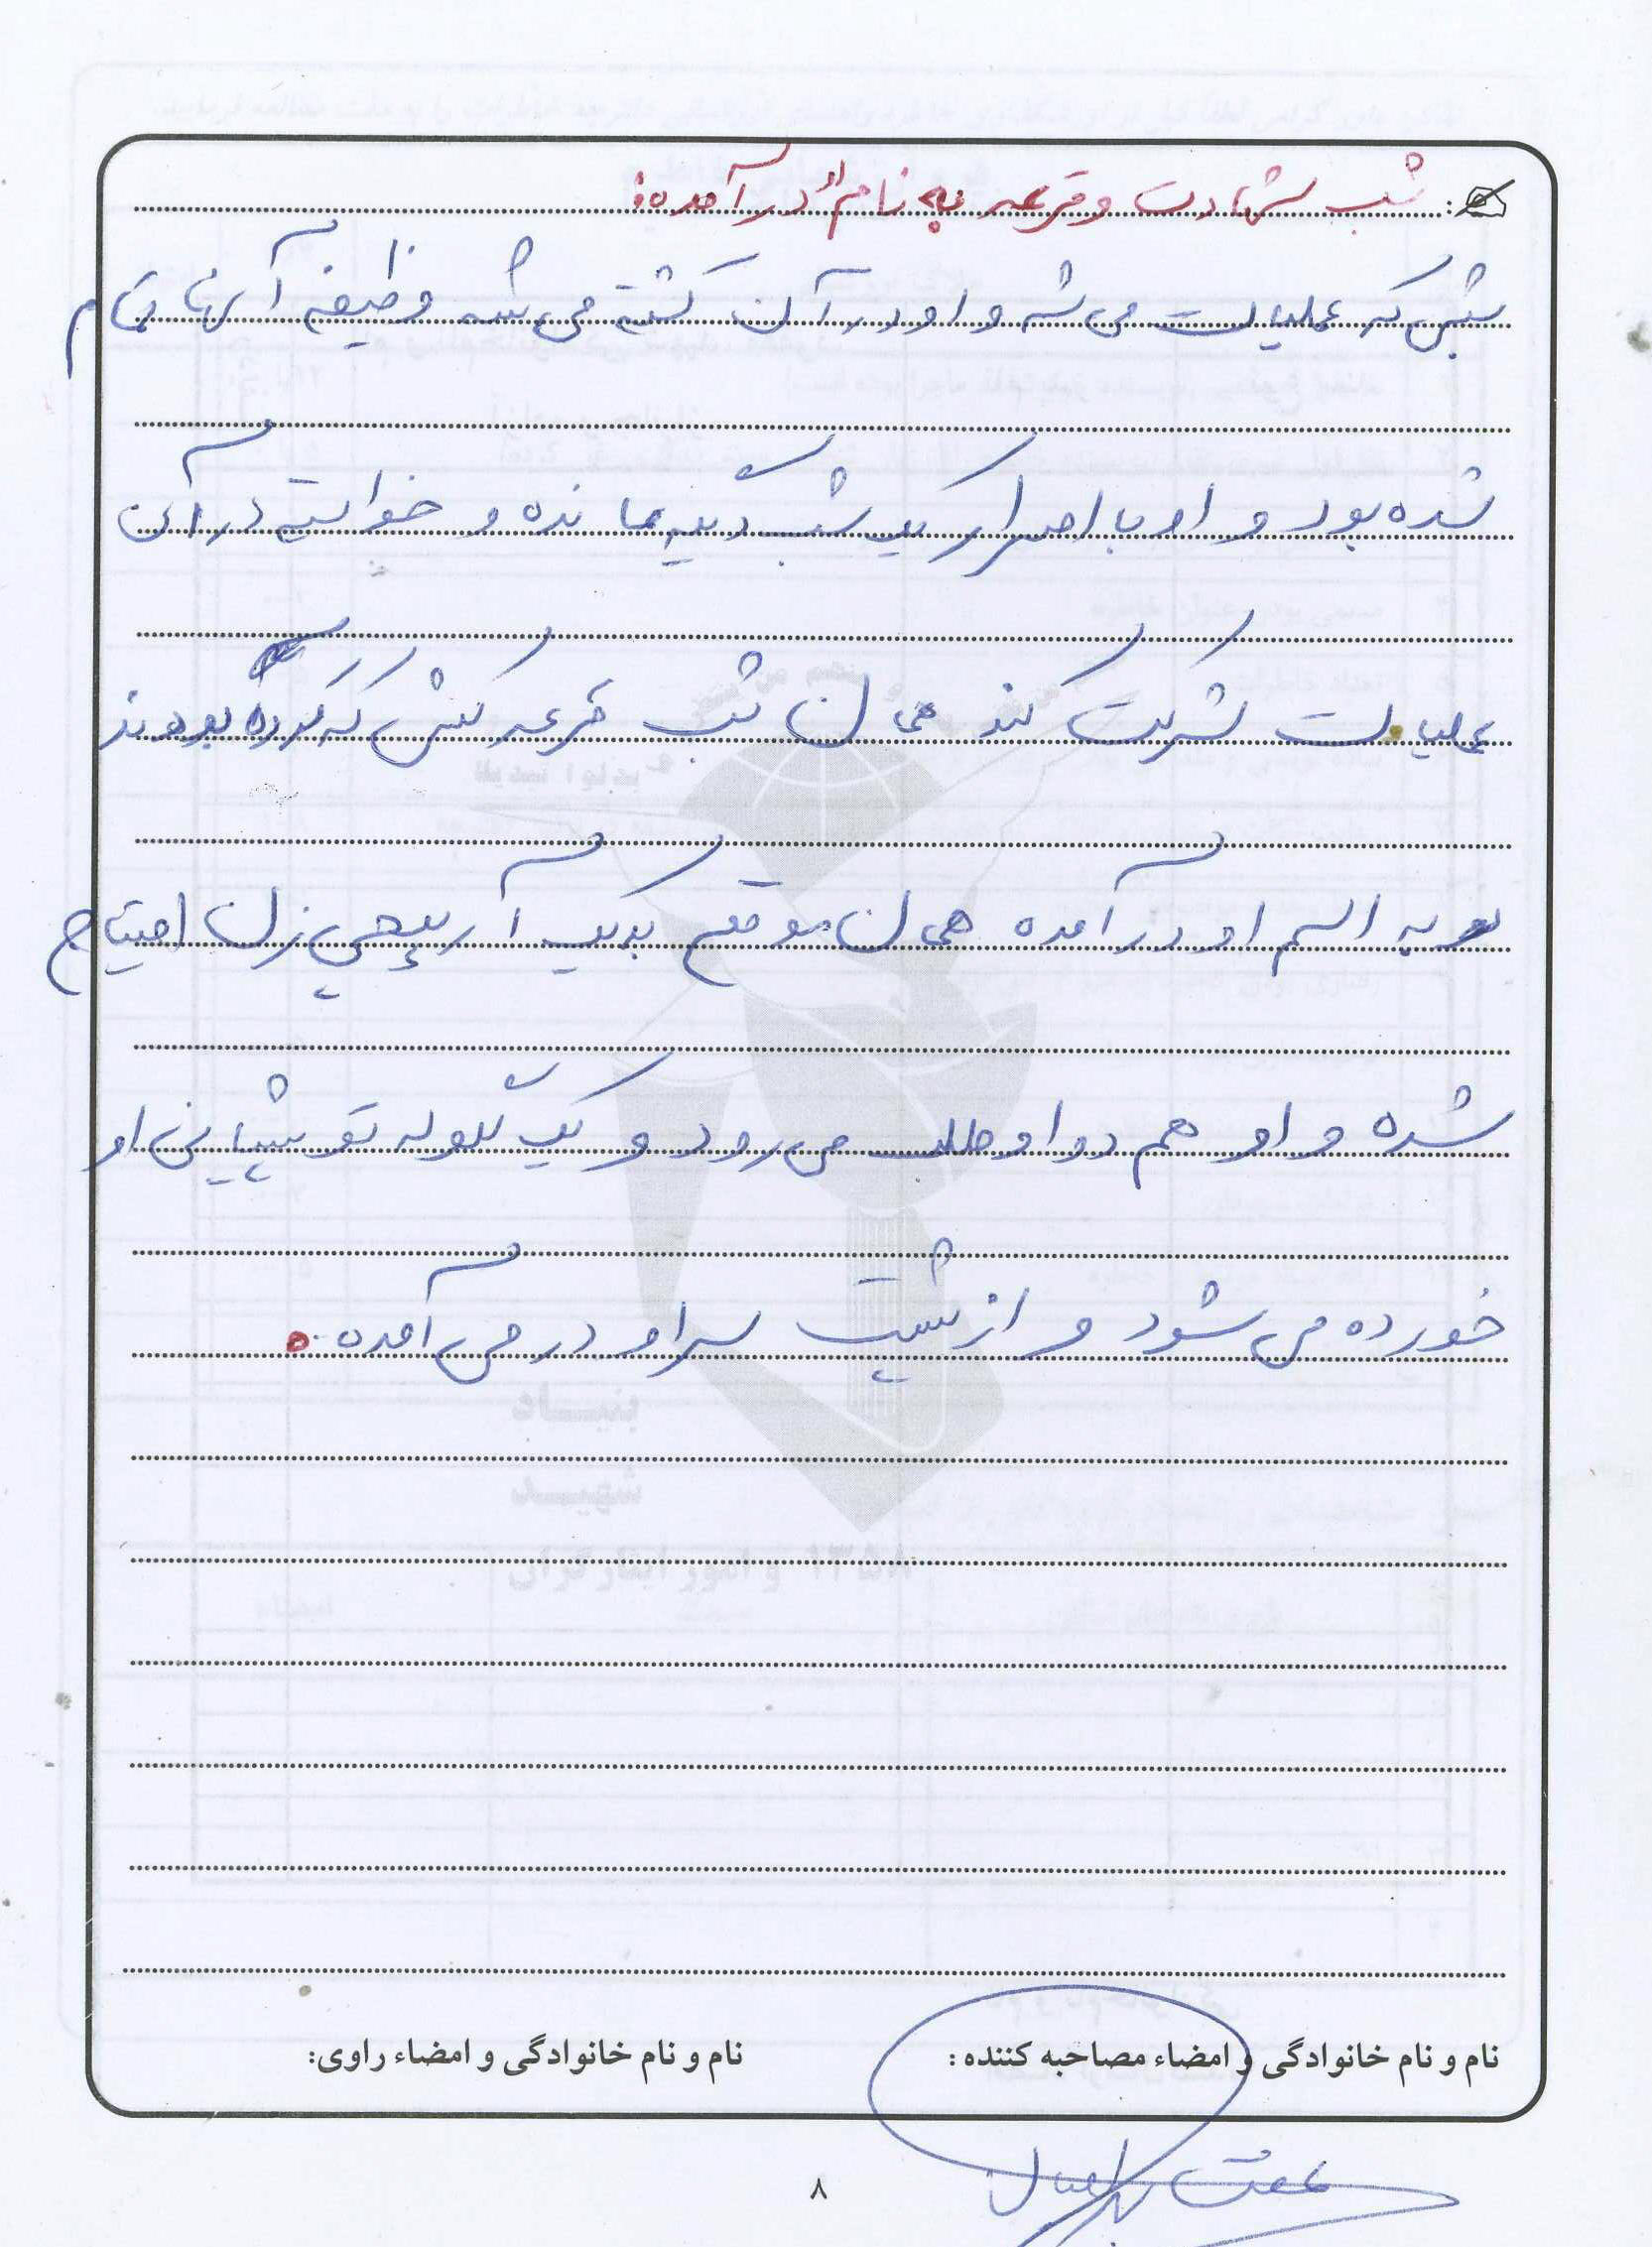 شب شهادت و قرعه به نام او در آمده:
شبی که عملیات می شه و او در آن کشته می شه وظیفه آنها تمام
شده بود و او با اصرار یک شب دیگه مانده و خواسته در آن
عملیات شرکت کند همان شب قرعه کشی که کرده بودند
به اسم او در آمده همان موقع به یک آرپیجی زن احتیاج
شده و او هم دو او طلب می رود و یک گلوله تو پیشانی او
خورده می شود و از پشت سر او در می آمده.
نام و نام خانوادگی و امضاء مصاحبه کننده:
نام و نام خانوادگی و امضاء راوی:
۸